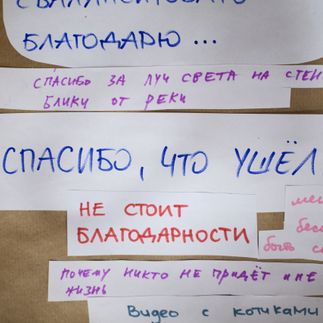 БЛАГОДАРЮ ...
СПАСИБО ЗА ЛУЧ СВЕТА НА СТЕН
БЛИКИ ОТ РЕКИ
СПАСИБО, ЧТО УШЁЛ
НЕ СТОИТ
БЛАГОДАРНОСТИ
ПОЧЕМУ НИКТО НЕ ПРИДЁТ И НЕ
ЖИЗНЬ
Видео с котиками